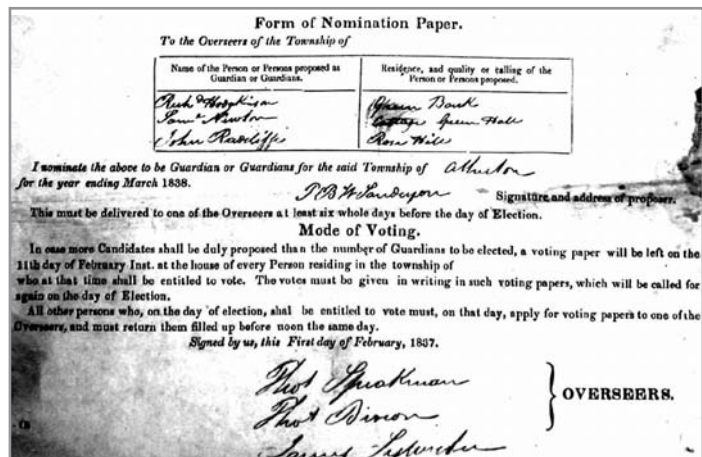 Form of Nomination Paper.
To the Overseers of the Township of
Name of the Person or Persons proposed as Guardian or Guardians.
Residence, and quality or calling of the Person or Persons proposed.
Richd Hodgkinson
Green Bank
Saml Newton
Cottage Green Hall
John Radcliffe
Rose Hill
I nominate the above to be Guardian or Guardians for the said Township of Atherton
for the year ending March 1838.
T B W Sanderson Signature and address of proposer.
This must be delivered to one of the Overseers at least six whole days before the day of Election.
Mode of Voting.
In case more Candidates shall be duly proposed than the number of Guardians to be elected, a voting paper will be left on the
11th day of February Inst. at the house of every Person residing in the township of
who at that time shall be entitled to vote. The votes must be given in writing in such voting papers, which will be called for
again on the day of Election.
All other persons who, on the day of election, shal be entitled to vote must, on that day, apply for voting papers to one of the
Overseers, and must return them filled up before noon the same day.
Signed by us, this First day of February, 1837.
Thos Speakman
Thos
OVERSEERS.
James